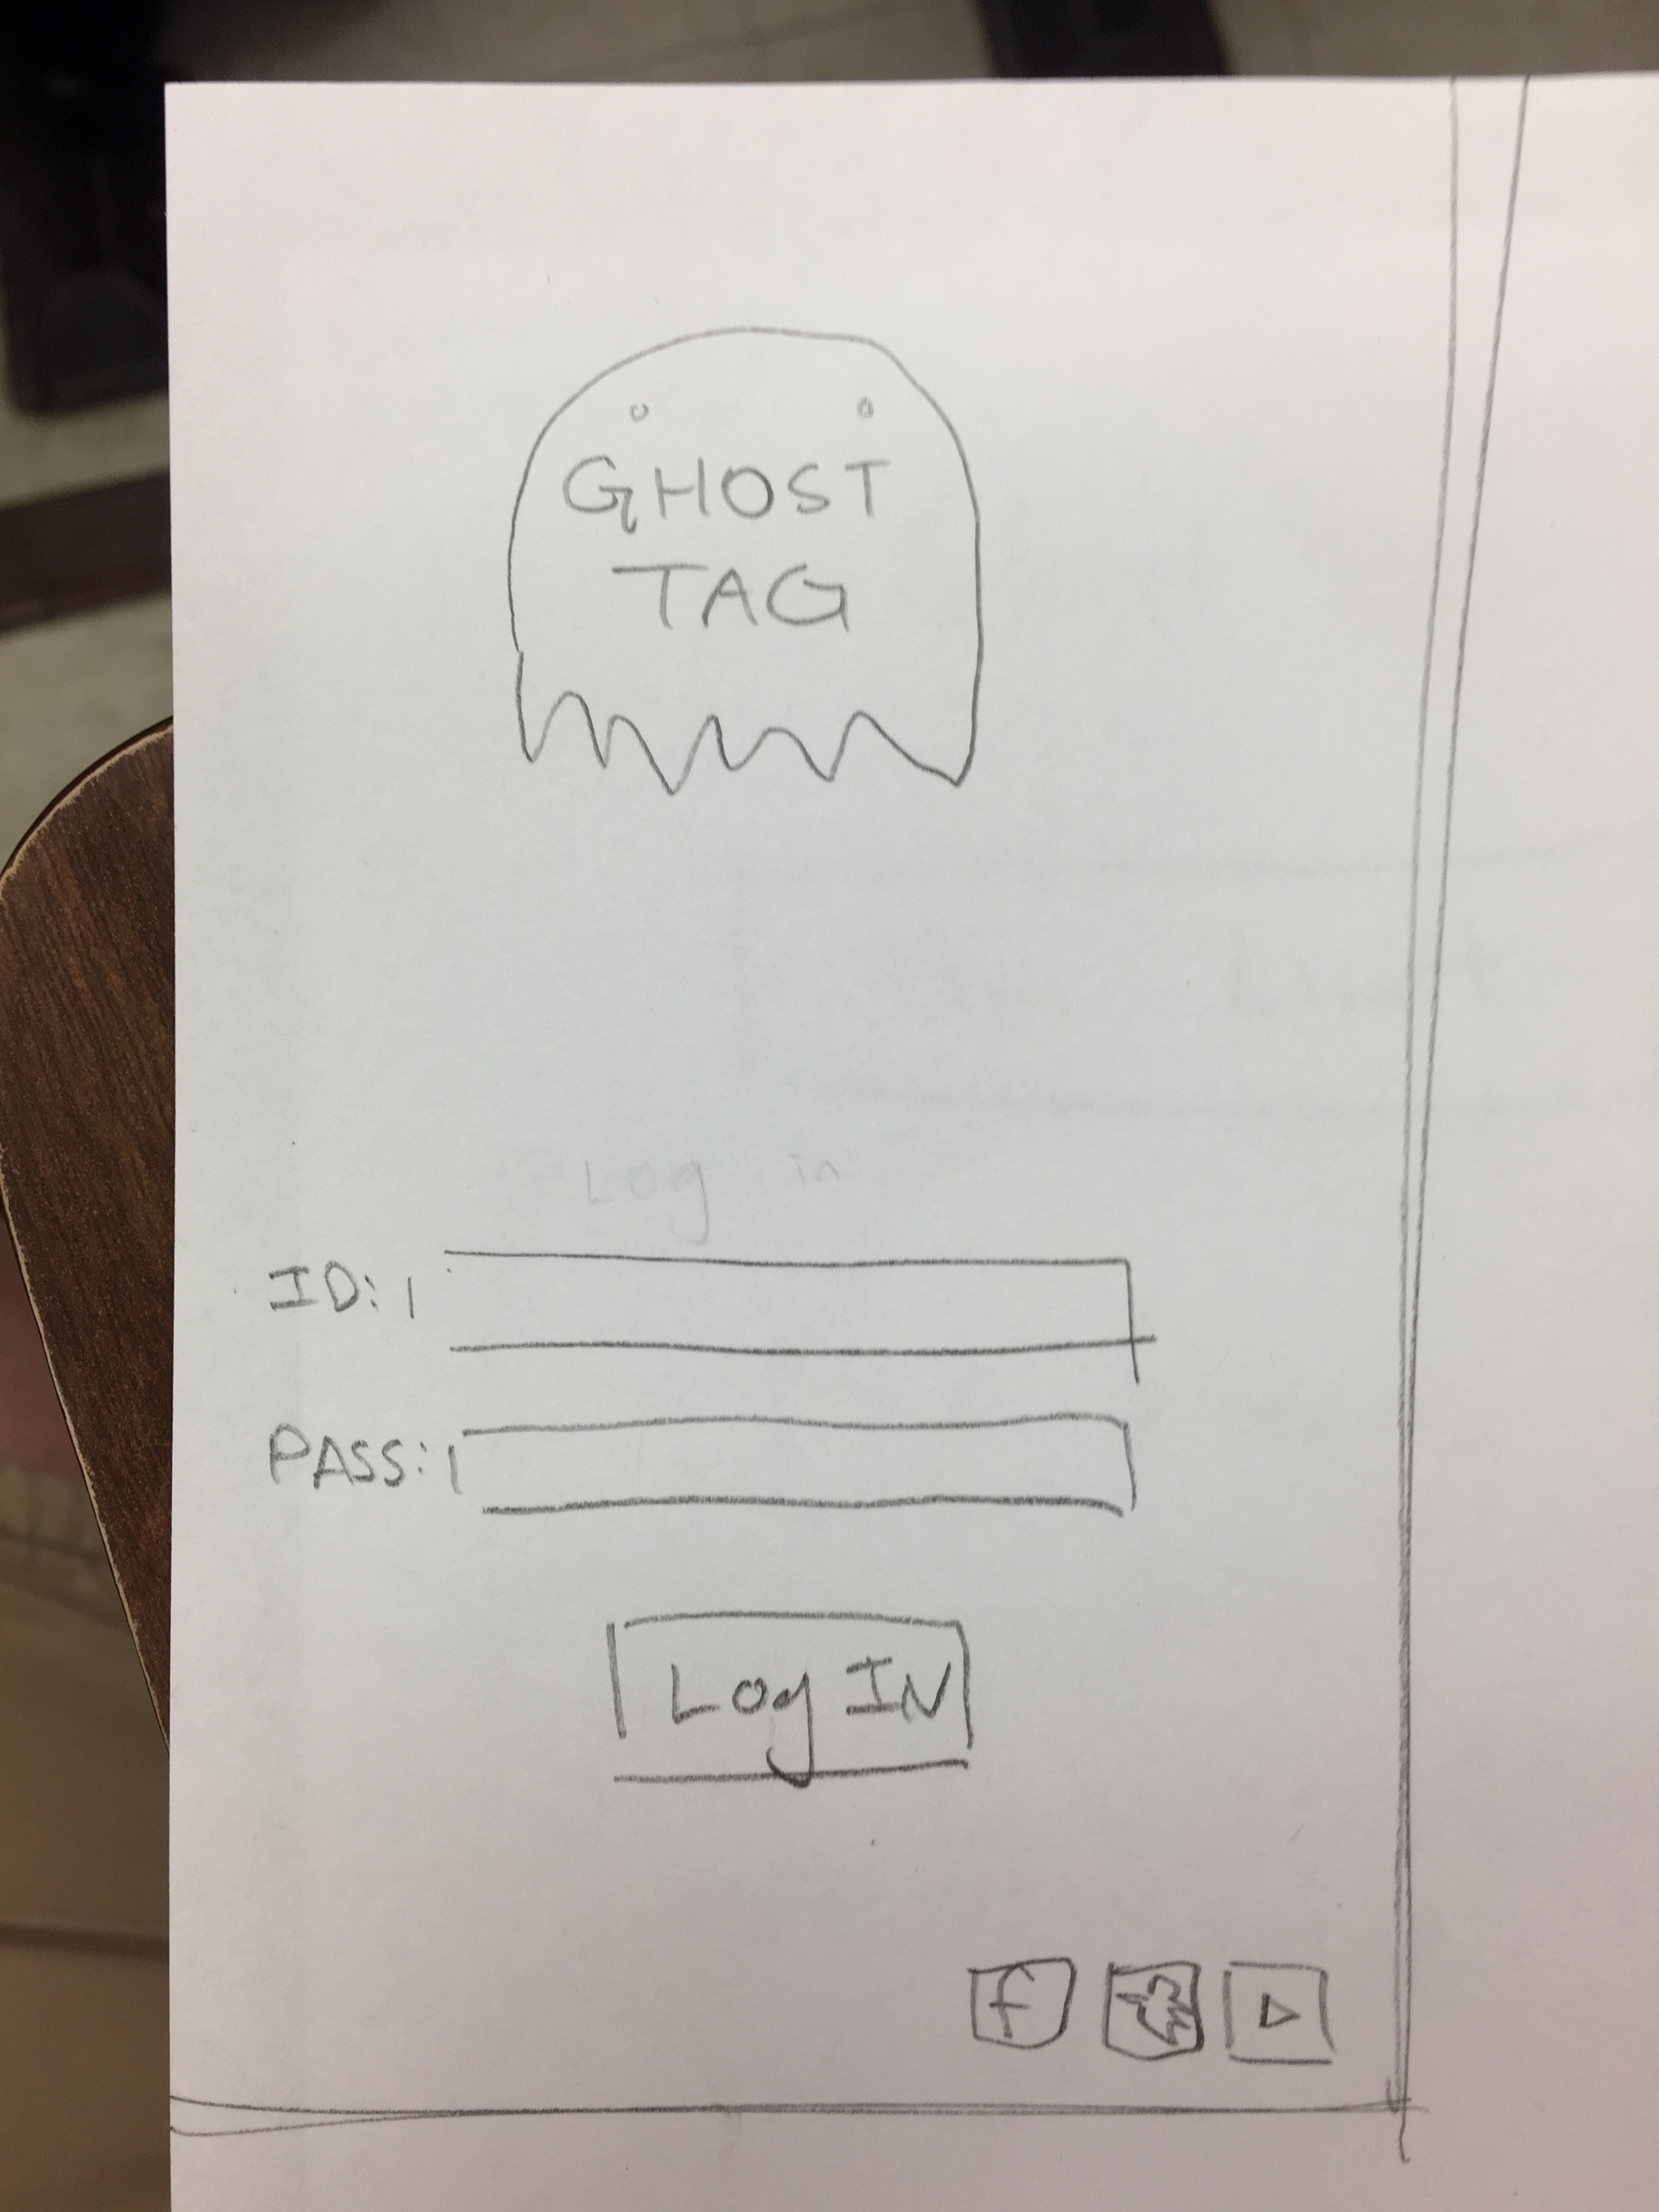 GHOST
TAG
Log in
ID:
PASS:
Log IN
f